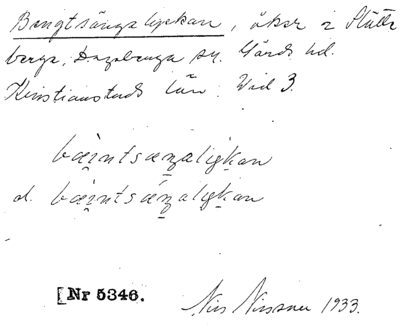 Bengtsängslyckan, åker i Slätte
berga, Degeberga sn. Gärds hd.
Kristianstads län. Wid 3.
bæintsæŋaligkan
d. bæintsæŋaligkan
[Nr 5346.
Nils Nilsson 1933.